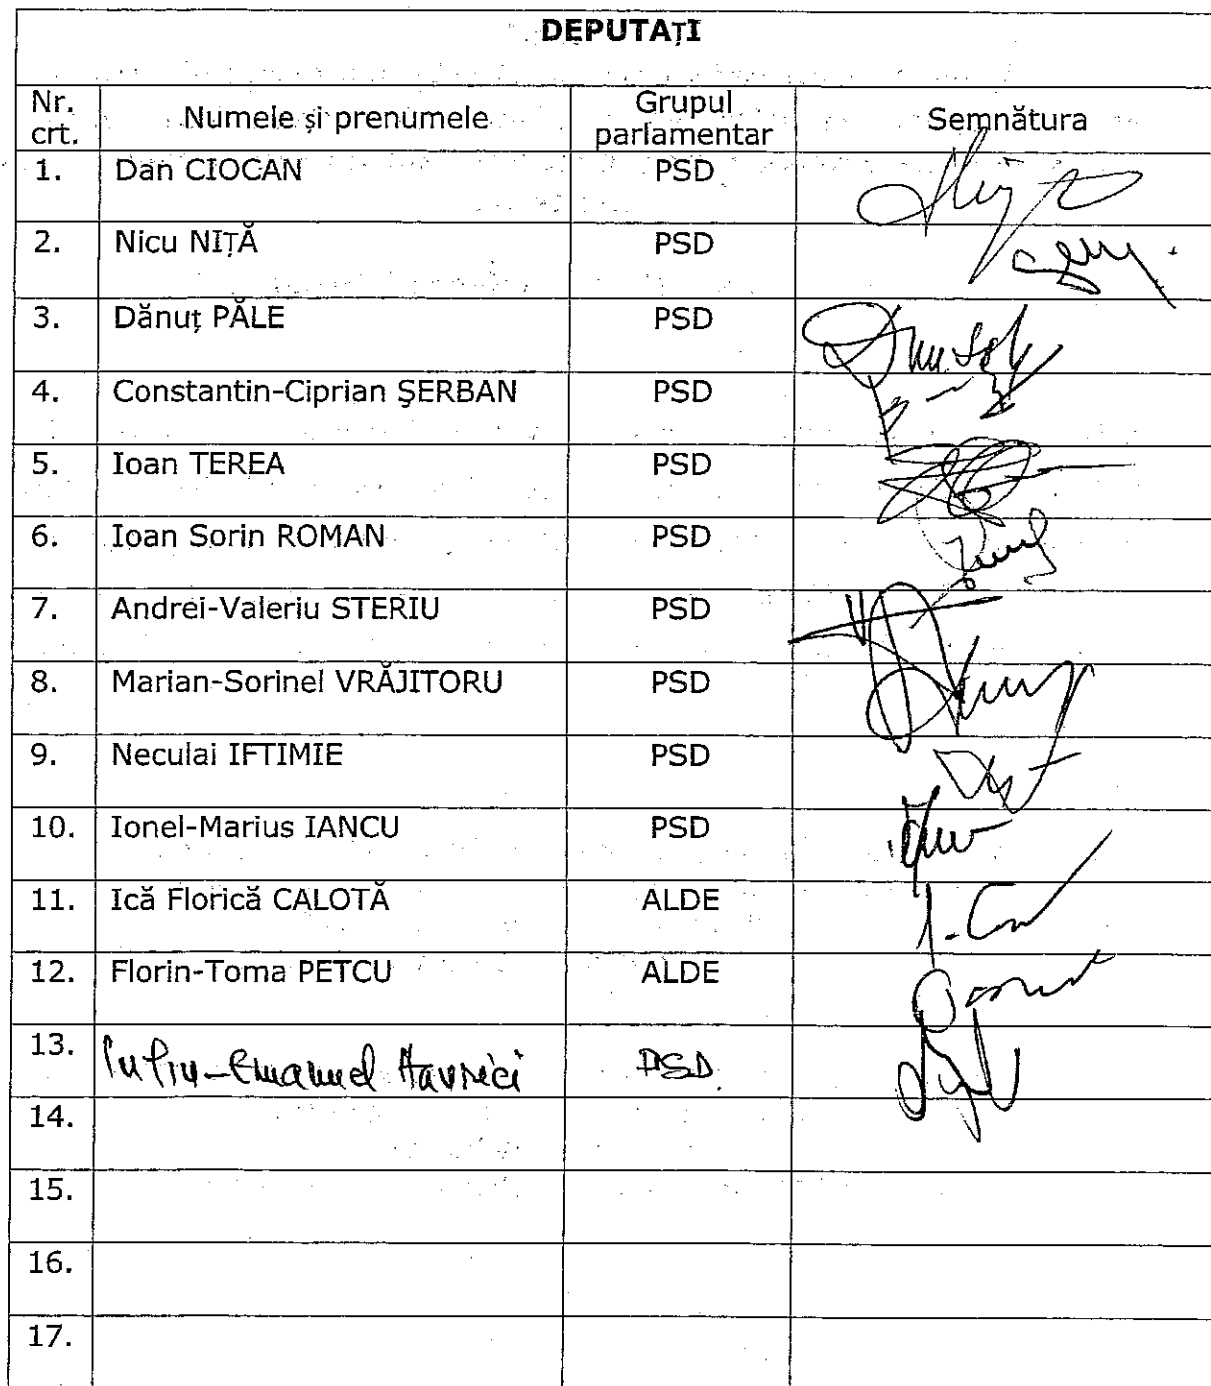 DEPUTAȚI
Nr. crt. Numele și prenumele Grupul parlamentar Semnătura
1. Dan CIOCAN PSD
2. Nicu NIȚĂ PSD
3. Dănuț PĂLE PSD
4. Constantin-Ciprian ŞERBAN PSD
5. Ioan TEREA PSD
6. Ioan Sorin ROMAN PSD
7. Andrei-Valeriu STERIU PSD
8. Marian-Sorinel VRĂJITORU PSD
9. Neculai IFTIMIE PSD
10. Ionel-Marius IANCU PSD
11. Ică Florică CALOTĂ ALDE
12. Florin-Toma PETCU ALDE
13. Iuliu-Emanuel Havrici PSD
14.
15.
16.
17.